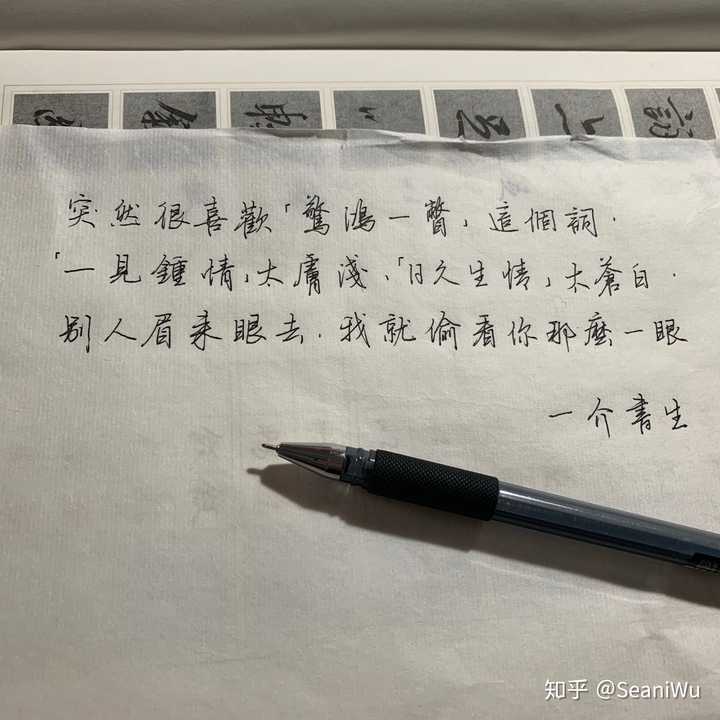 突然很喜歡「驚鴻一瞥」這個詞.
「一見鍾情」太膚淺、「日久生情」太蒼白.
別人眉来眼去.我就偷看你那麼一眼
一介書生
知乎 @SeaniWu